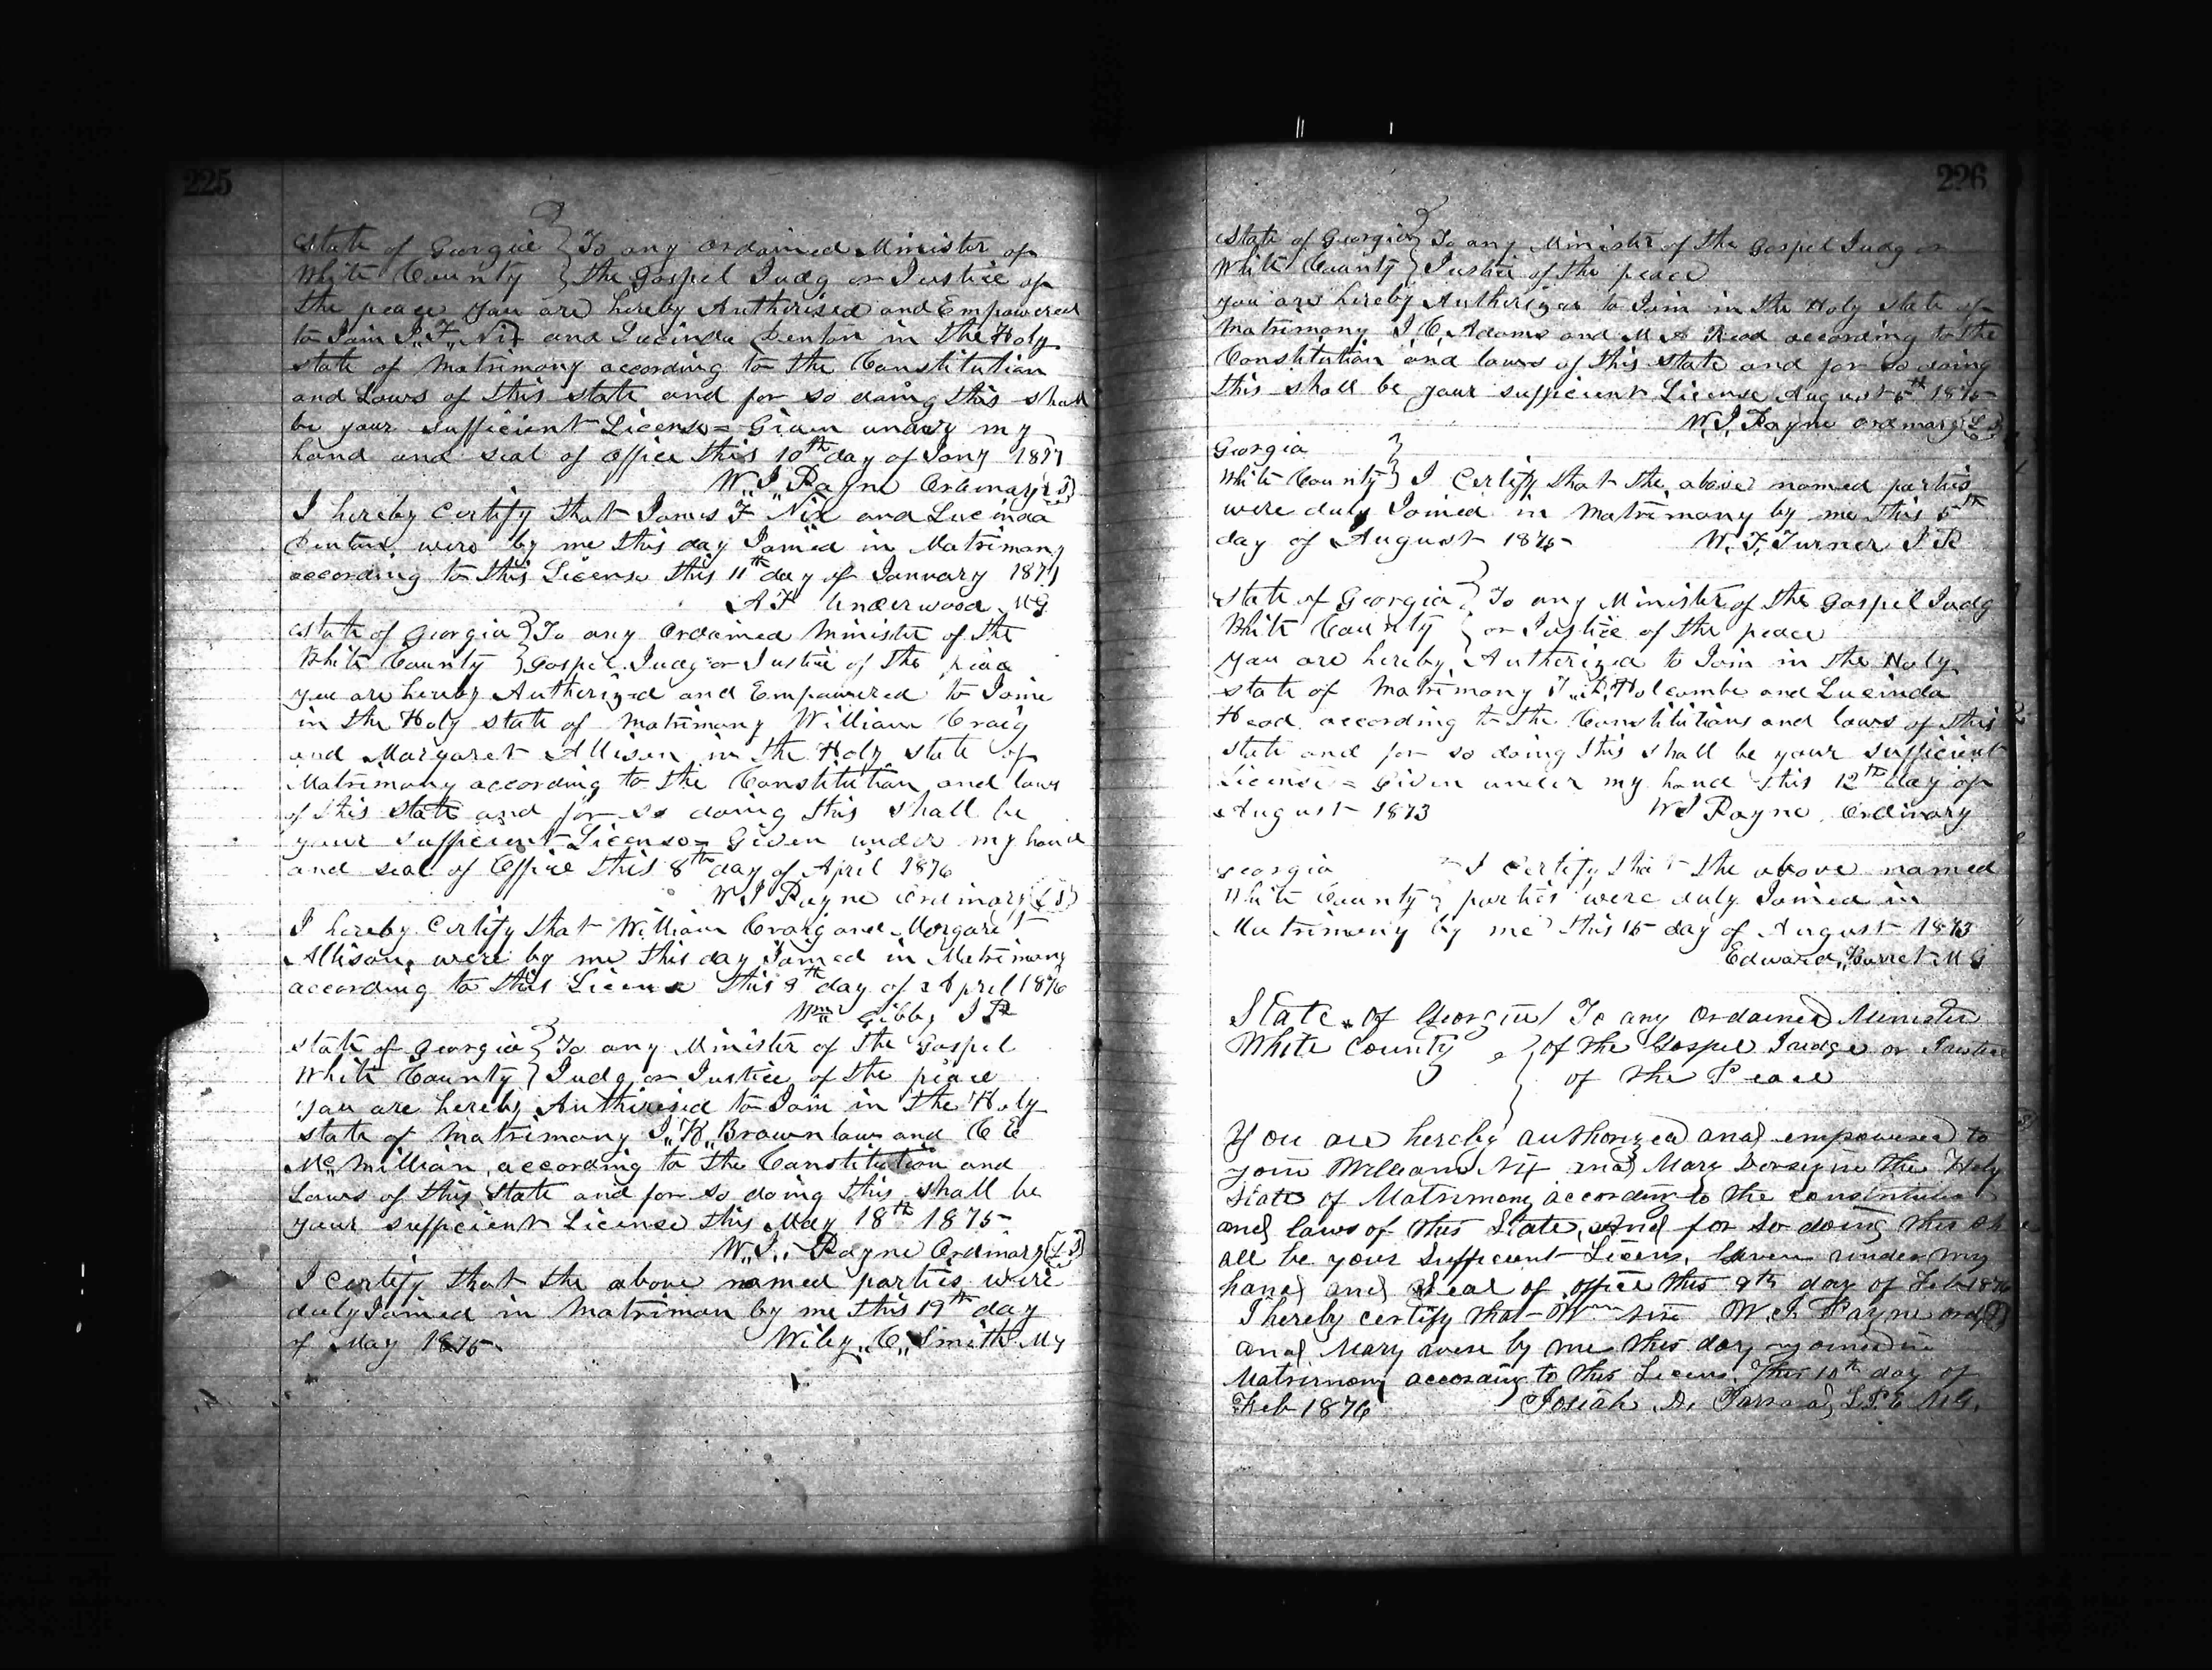 225
State of Georgia } To any Ordained Minister of
White County } the Gospel Judg or Justice of
the peace you are hereby Authorised and Empowered
to Join J.F. Nix and Lucinda Denton in the Holy
state of Matrimony according to the Constitution
and Laws of this state and for so doing this shall
be your sufficient License = Given under my
hand and seal of office this 10th day of Jany 1877
W.J. Payne Ordinary (L S)
I hereby Certify that James F Nix and Lucinda
Denton, were by me this day Joined in Matrimony
according to this License this 11th day of January 1877
A F Underwood MG
State of Georgia } To any Ordained Minister of the
White County } Gospel Judg or Justice of the peace
you are hereby Authorized and Empowered to Joine
in the Holy state of Matrimony William Craig
and Margaret Allison in the Holy state of
Matrimony according to the Constitution and laws
of this state and for so doing this shall be
your sufficient License = Given under my hand
and seal of Office this 8th day of April 1876
W J Payne Ordinary (L S)
I hereby Certify that William Craig and Margaret
Allison, were by me this day Joined in Matrimony
according to this License this 9th day of April 1876
Wm Gibby J P
State of Georgia } To any Minister of the Gospel
White County } Judg or Justice of the peace
you are hereby Authorised to Join in the Holy
state of Matrimony J.K. Brownlow and C E
McMillian, according to the Constitution and
Laws of this State and for so doing this shall be
your sufficient License this May 18th 1875
W.J. Payne Ordinary (L S)
I certify that the above named parties were
duly Joined in Matrimon by me this 19th day
of May 1875. Wiley C. Smith Mg
226
State of Georgia } To any Minister of the Gospel Judg or
White County } Justice of the peace
you are hereby Authorizea to Join in the Holy state of
Matrimony J C, Adams and M A Head according to the
Constitution and laws of this state and for so doing
this shall be your sufficient License August 5th 1875
W.J. Payne Ordinary (L S)
Georgia }
White County } I Certify that the above named parties
were duly Joined in Matrimony by me this 5th
day of August 1875 W. F. Turner J P
State of Georgia } To any Minister of the Gospel Judg
White County } or Justice of the peace
you are hereby Authorized to Join in the Holy
state of Matrimony Holcombe and Lucinda
Head according to the Constitutions and laws of this
state and for so doing this shall be your sufficient
License = Given under my hand this 12th day of
August 1873 W J Payne Ordinary
Georgia I certify that the above named
White County } parties were duly Joined in
Matrimony by me this 15 day of August 1873
Edward M G
State of Georgia } To any Ordained Minister
White County } of the Gospel Judge or Justice
of the Peace
You are hereby authorized and empowered to
join William Nix and Mary Dorsey in the Holy
State of Matrimony according to the constitution
and laws of this State, And for so doing this sh
all be your Sufficient Licens, Given under my
hand and Seal of office this 9th day of Feb 1876
I hereby certify that Wm Nix W. J. Payne ord
and Mary were by me this day in
Matrimony according to this Licens, This 10th day of
Feb 1876 Josiah D. M.G.